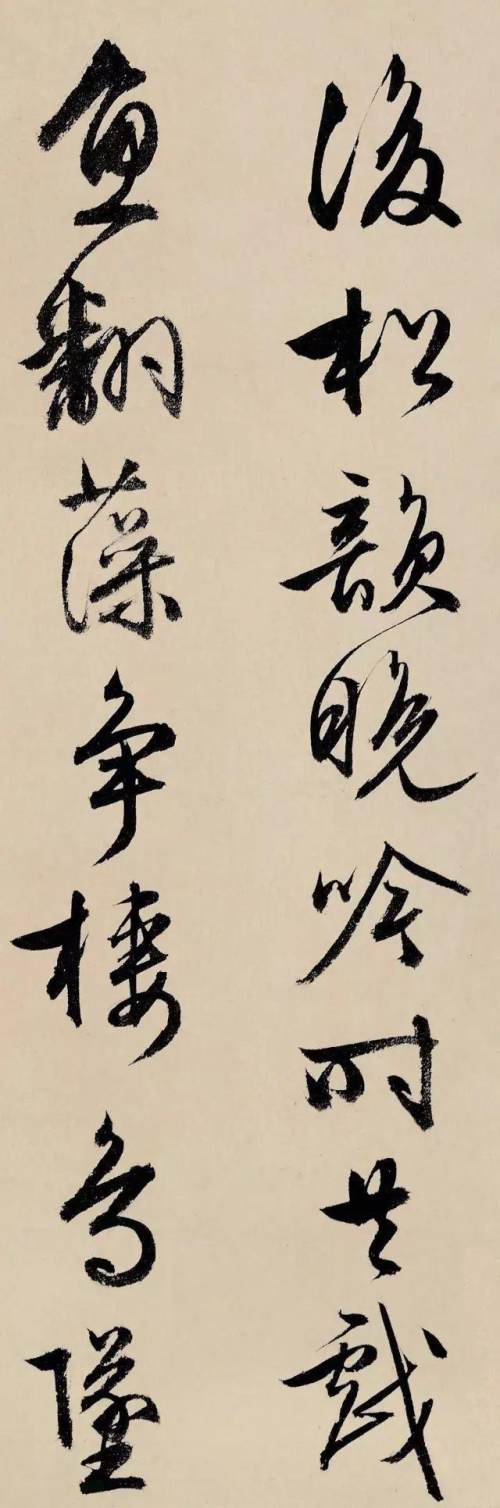 後松韻晚吟時共戲
魚翻藻争棲鳥墜